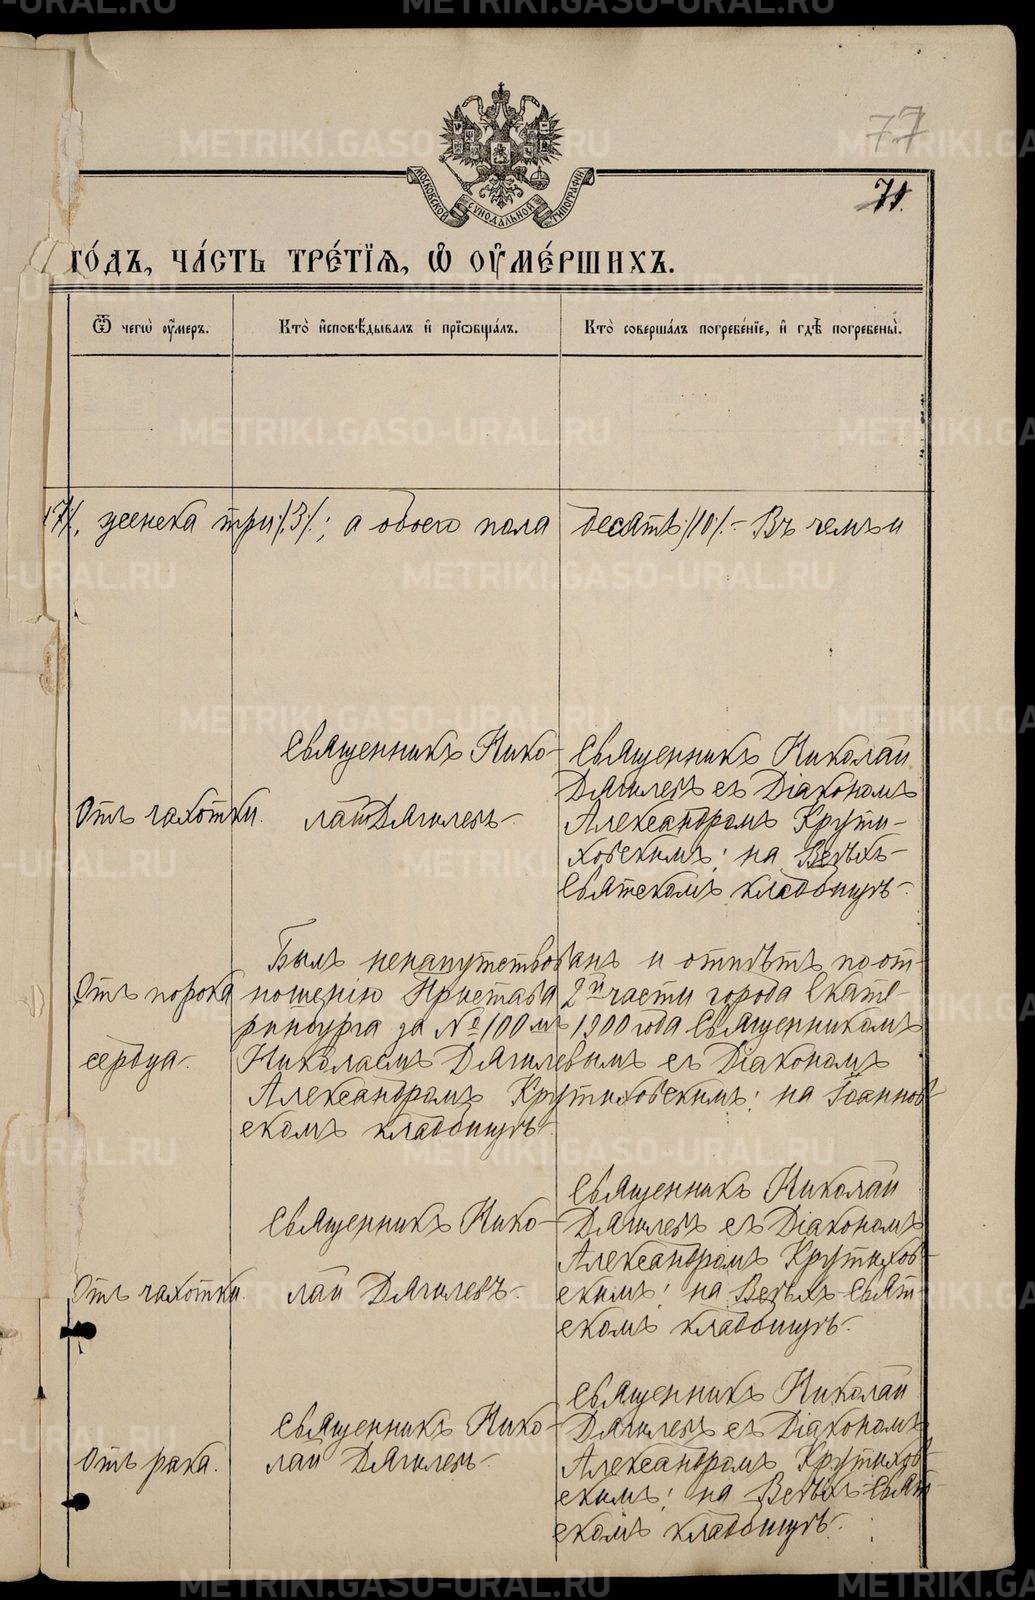 METRIKI.GASO-URAL.RU
77
71.
МОСКОВСКОЙ СѴНОДАЛЬНОЙ ТИПОГРАФІИ
ГО́ДЪ, ЧА́СТЬ ТРЕ́ТІѦ, Ѡ҆ ОУ҆МЕ́РШИХЪ.
Ѿ чегѡ̀ оу҆́меръ.
Кто̀ и҆сповѣ́дывалъ и҆ прїѡбща́лъ.
Кто̀ соверша́лъ погребе́нїе, и҆ гдѣ̀ погребены̀.
/7/, женска три /3/; а обоего пола десять /10/ – Въ чемъ и
Отъ чахотки.
Священникъ Нико-
лай Дягилевъ –
Священникъ Николай
Дягилевъ съ Діакономъ
Александромъ Крути-
ховскимъ; на Всѣхъ-
Святскомъ кладбищѣ –
Отъ порока
сердца –
Былъ ненапутствованъ и отпѣтъ по от-
ношенію Пристава 2й части города Екате-
ринбурга за № 100мъ 1900 года Священникомъ
Николаемъ Дягилевымъ съ Діакономъ
Александромъ Крутиховскимъ; на Іоаннов-
скомъ кладбищѣ –
Отъ чахотки.
Священникъ Нико-
лай Дягилевъ –
Священникъ Николай
Дягилевъ съ Діакономъ
Александромъ Крутихов-
скимъ; на Всѣхъ-Свят-
скомъ кладбищѣ –
Отъ рака.
Священникъ Нико-
лай Дягилевъ –
Священникъ Николай
Дягилевъ съ Діакономъ
Александромъ Крутихов-
скимъ; на Всѣхъ-Свят-
скомъ кладбищѣ –